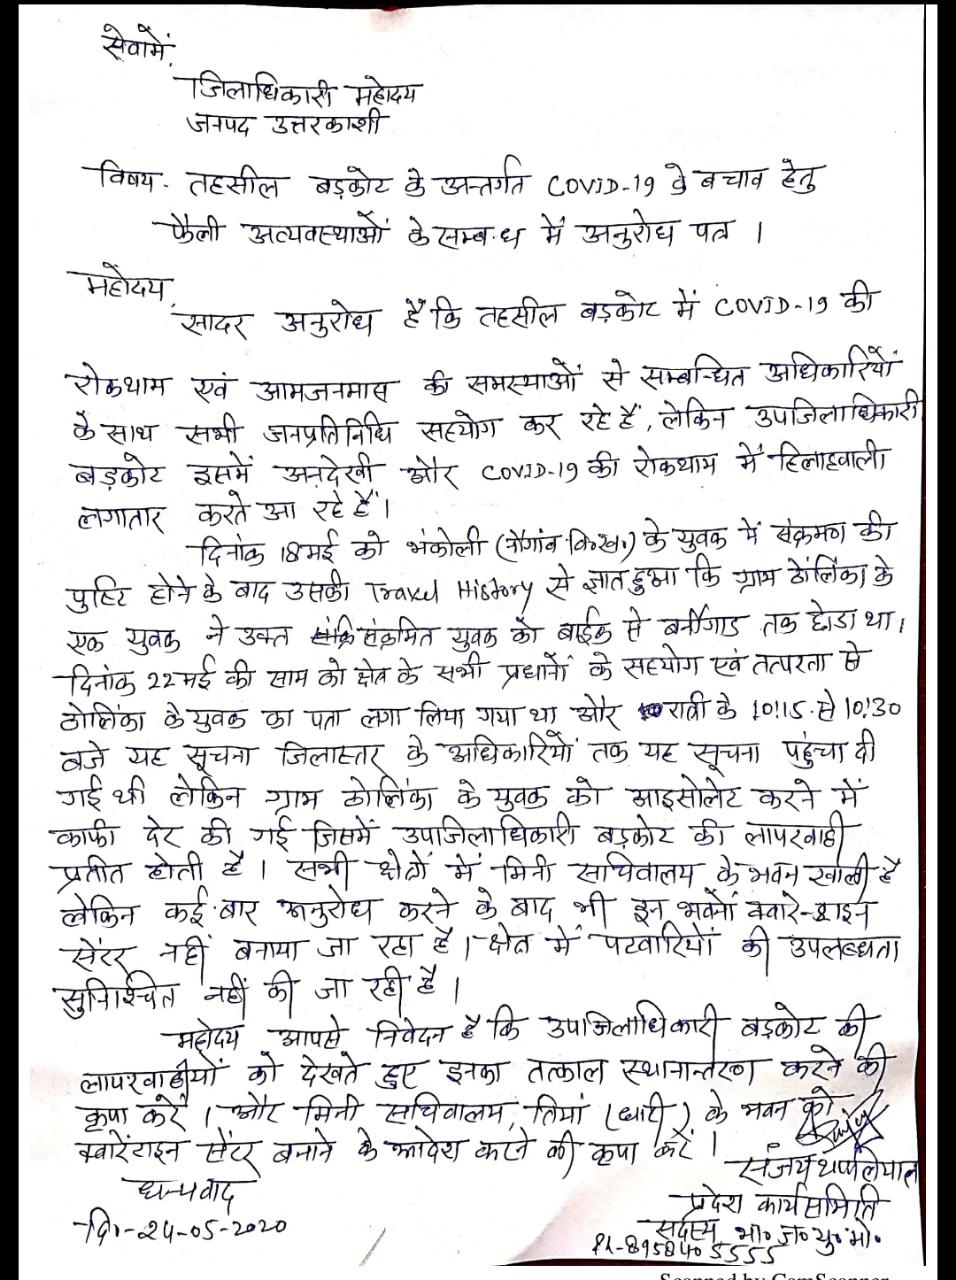 सेवामें,
जिलाधिकारी महोदय
जनपद उत्तरकाशी
विषय- तहसील बड़कोट के अन्तर्गत COVID-19 के बचाव हेतु
फैली अव्यवस्थाओं के सम्बन्ध में अनुरोध पत्र ।
महोदय,
सादर अनुरोध है कि तहसील बड़कोट में COVID-19 की
रोकथाम एवं आमजनमास की समस्याओं से सम्बन्धित अधिकारियों
के साथ सभी जनप्रतिनिधि सहयोग कर रहे हैं, लेकिन उपजिलाधिकारी
बड़कोट इसमें अनदेखी और COVID-19 की रोकथाम में हिलाहवाली
लगातार करते आ रहे हैं।
दिनांक 18 मई को भंकोली (नौगांव वि.ख.) के युवक में संक्रमण की
पुष्टि होने के बाद उसकी Travel History से ज्ञात हुआ कि ग्राम ठोलिंका के
एक युवक ने उक्त संक्रमित युवक को बाईक से बर्नीगाड तक छोडा था।
दिनांक 22 मई की साम को क्षेत्र के सभी प्रधानों के सहयोग एवं तत्परता से
ठोलिंका के युवक का पता लगा लिया गया था और रात्री के 10:15 से 10:30
बजे यह सूचना जिलास्तर के अधिकारियों तक यह सूचना पहुंचा दी
गई थी लेकिन ग्राम ठोलिंका के युवक को आइसोलेट करने में
काफी देर की गई जिसमें उपजिलाधिकारी बड़कोट की लापरवाही
प्रतीत होती है । सभी क्षेत्रों में मिनी सचिवालय के भवन खाली है
लेकिन कई बार अनुरोध करने के बाद भी इन भवनों क्वारेन्टाइन
सेंटर नहीं बनाया जा रहा है। क्षेत्र में पटवारियों की उपलब्धता
सुनिश्चित नहीं की जा रही है ।
महोदय आपसे निवेदन है कि उपजिलाधिकारी बड़कोट की
लापरवाहीयों को देखते हुए इनका तत्काल स्थानान्तरण करने की
कृपा करें । और मिनी सचिवालय, तियां (घाटी) के भवन को
क्वारेंटाइन सेंटर बनाने के आदेश करने की कृपा करें ।
संजय थपलियाल
धन्यवाद
प्रदेश कार्यसमिति
दि०-24-05-2020
सदस्य भा० ज० यु० मो०
Ph-8958405555